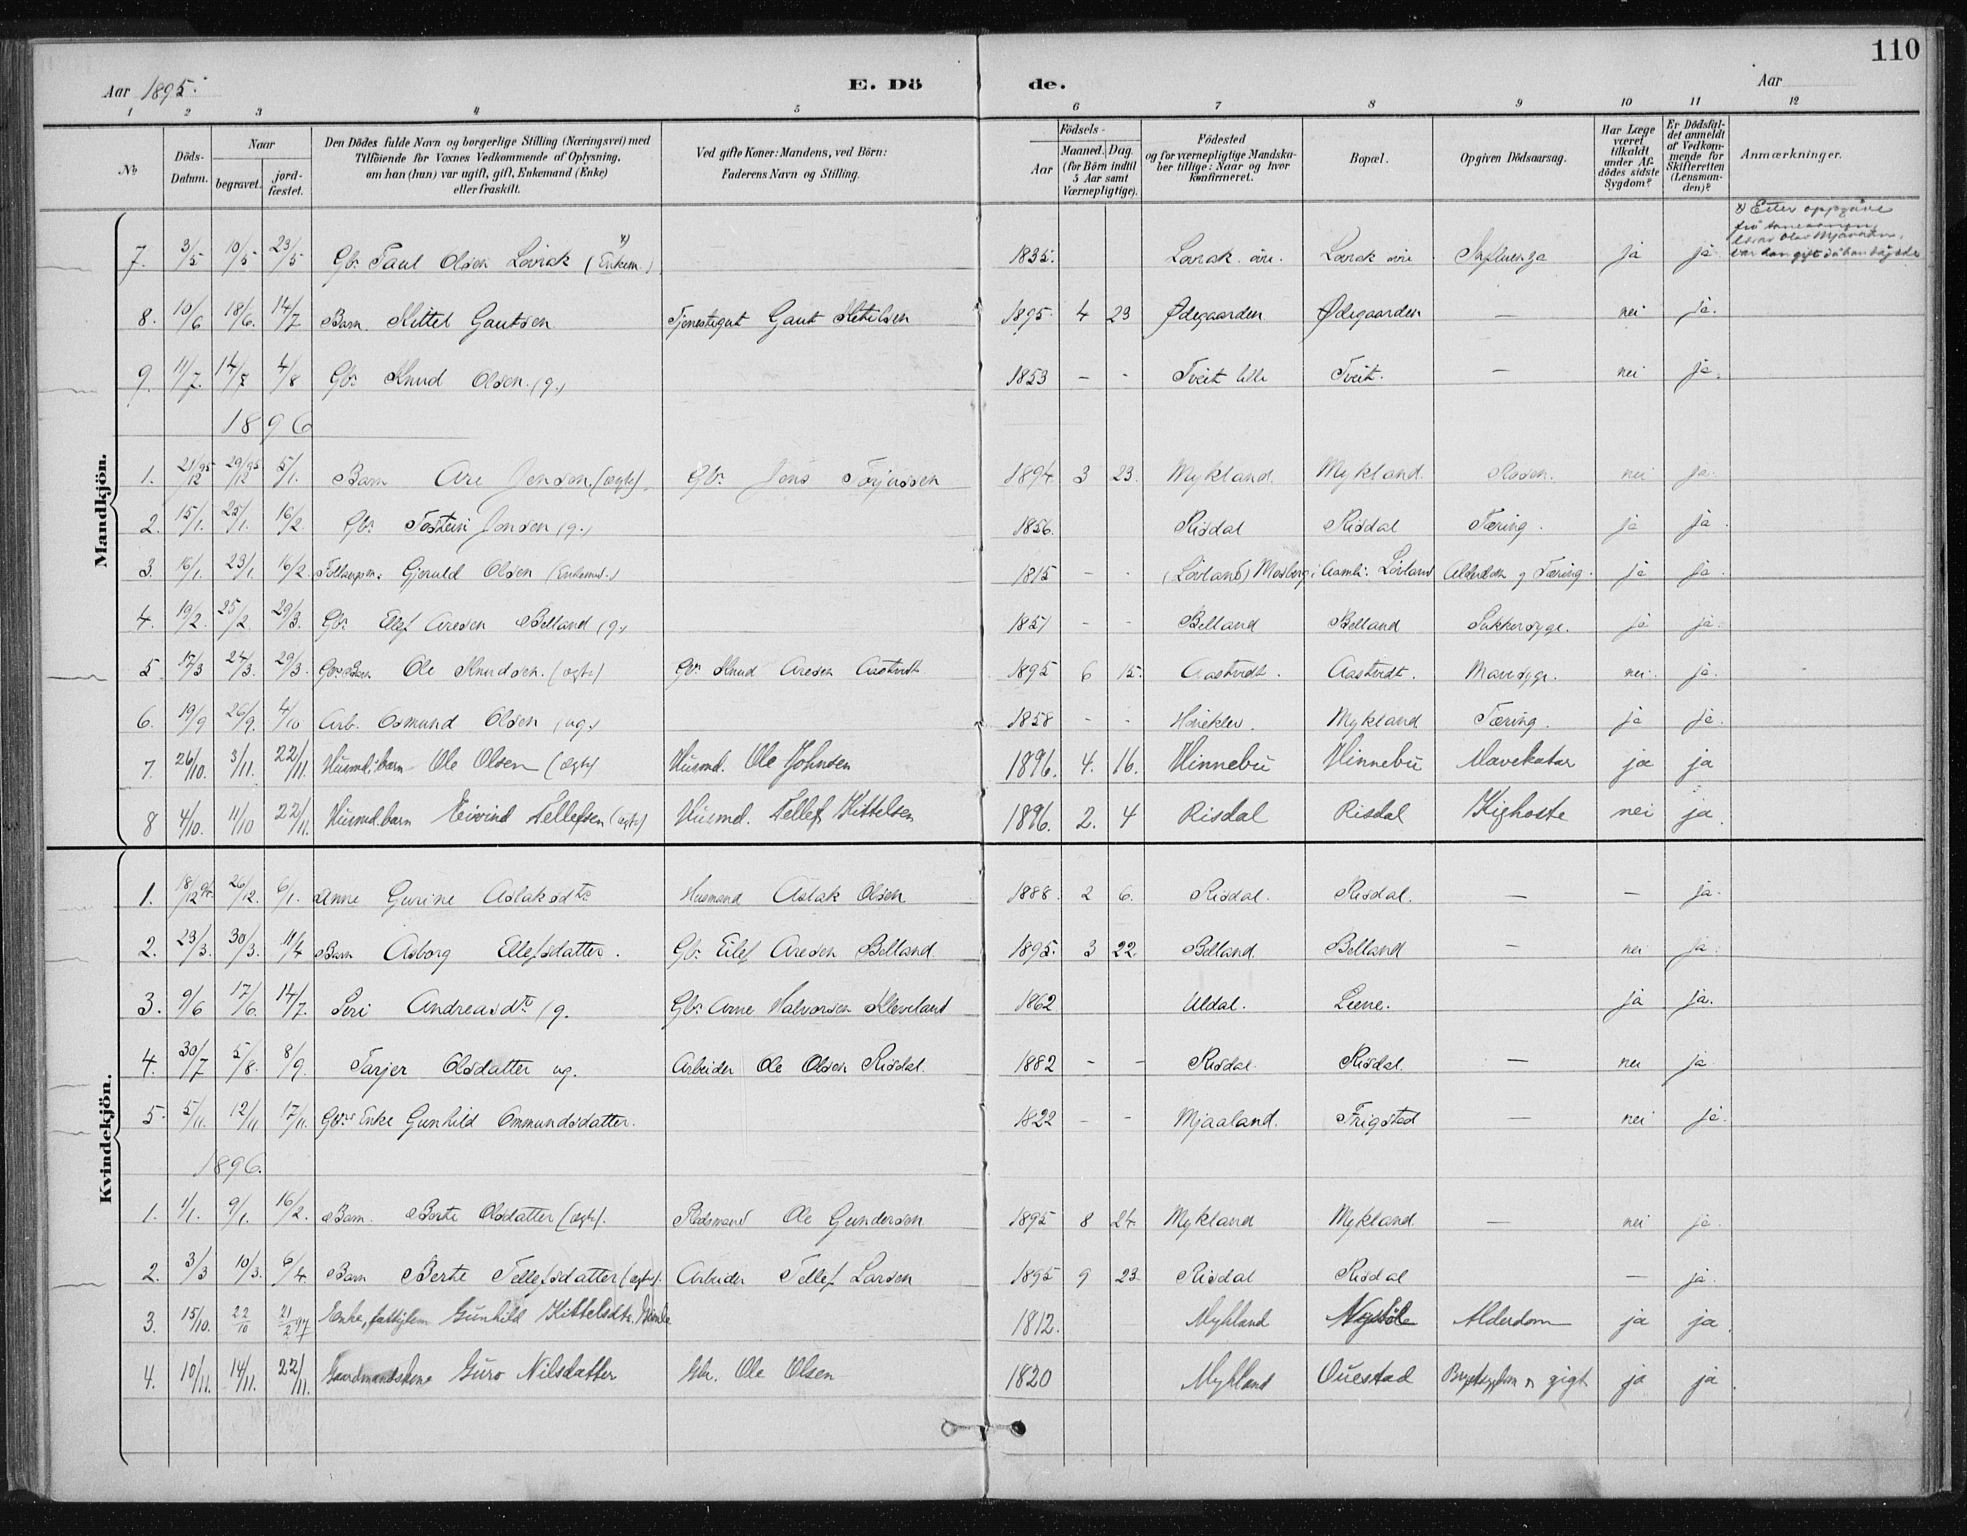 110
Aar 1895. E. Dö de. Aar
1 2 3 4 5 6 7 8 9 10 11 12
No
Döds-Datum.
Naar
begravet.
jord-fæstet.
Den Dödes fulde Navn og borgerlige Stilling (Næringsvei) med
Tilföiende for Voxnes Vedkommende af Oplysning,
om han (hun) var ugift, gift, Enkemand (Enke)
eller fraskilt.
Ved gifte Koner: Mandens, ved Börn:
Faderens Navn og Stilling.
Födsels-
Aar
Maaned. Dag.
(for Börn indtil
5 Aar samt
Værnepligtige).
Födested
og for værnepligtige Mandska-
ber tillige: Naar og hvor
konfirmeret.
Bopæl.
Opgiven Dödsaarsag.
Har Læge
været
tilkaldt
under Af-
dödes sidste
Sygdom?
Er Dödsfal-
det anmeldt
af Vedkom-
mende for
Skifteretten
(Lensman-
den)?
Anmærkninger.
Mandkjön.
7. 3/5 10/5 23/5 Gbr. Taul Olsen Lövrak (Enkem.) x) 1835. Lövrak övre. Lövrak övre Influenza ja ja x) Etter oppgave
8. 10/6 18/6. 14/7 Barn. Kittel Gautsen Tjenestegut Gaut Ketilsen 1895. 4 23 Ødegaarden Ødegaarden — nei ja.
9. 11/7. 14/7 4/8 Gbr. Knud Olsen. (g.) 1853 - - Tveit lille Tveit. — nei ja.
1896
1. 21/12 95 29/12 95 5/1. Barn Are Jensen. (ægte) Gbr. Jens Terjussen 1894 3 23. Mykland. Mykland. Rosen. nei ja.
2. 15/1. 25/1. 16/2 Gbr. Tostein Jonsen (g.) 1856. Risdal Risdal Tæring. ja ja.
3. 16/1. 23/1. 16/2. Gjeruld Olsen (Enkemd.) 1815 - - (Lövland) Aamli. Lövland Alderdom og Tæring. ja ja.
4. 19/2. 25/2. 29/3. Gbr. Ellef Aresen Belland (g.) 1851 - - Belland Belland Sukkersyge. ja ja.
5. 17/3 24/3. 29/3. Gbrs Barn Ole Knudsen. (ægte) Gbr. Knud Aresen Aastvedt 1895 6 15. Aastvedt. Aastvedt. Mavesyge. nei. ja.
6. 19/9 26/9. 4/10 Arb. Osmund Olsen (ug.) 1858 - - Mykland Tæring. ja ja.
7. 26/10. 3/11. 22/11. Husmd. barn Ole Olsen (ægte) Husmd. Ole Johnsen 1896. 4. 16. Hinnebu Hinnebu Mavekatar ja ja
8 4/10. 11/10 22/11. Husmd. barn Eivind Tellefsen (ægte) Husmd. Tellef Kittelsen 1896. 2. 4 Risdal Risdal Kighoste nei ja.
Kvindekjön.
1. 18/12 94. 26/12. 6/1. Anne Gurine Aslaksdtr Husmand Aslak Olsen 1888. 2 6. Risdal. Risdal. — — ja.
2. 23/3. 30/3. 11/4 Barn Asborg Ellefsdatter. Gbr. Eilef Aresen Belland 1895. 3 22 Belland Belland — nei ja.
3. 9/6 17/6. 14/7. Siri Andreasdtr (g. Gbr. Arne Halvorsen Kleveland 1862 Uldal. Liene. ja ja.
4. 30/7 5/8. 8/9. Tarjer Olsdatter ug. Arbeider Ole Olsen Risdal. 1882 - - Risdal. Risdal. — nei ja
5. 5/11. 12/11 17/11. Gbrs Enke Gunhild Ommundsdatter. 1822 - - Mjaaland. Frigstad — nei ja.
1896.
1. 1/1. 9/1. 16/2. Barn. Berte Olsdatter (ægte). Ole Gundersen 1895 8 24. Mykland Mykland — nei ja.
2. 3/3 10/3. 6/4. Barn Berte Tellefsdatter (ægte). Arbeider Tellef Larsen 1895 9 23. Risdal Risdal — ja.
3. 15/10. 22/10 21/2 97 Enke, fattiglem Gunhild Kittelsdtr. 1812. Mykland Alderdom ja ja.
4. 10/11. 14/11. 22/11. Gaardmandskone Guro Nilsdatter Gbr. Ole Olsen 1820 Mykland Ouestad Brystsygdom og gigt ja ja.